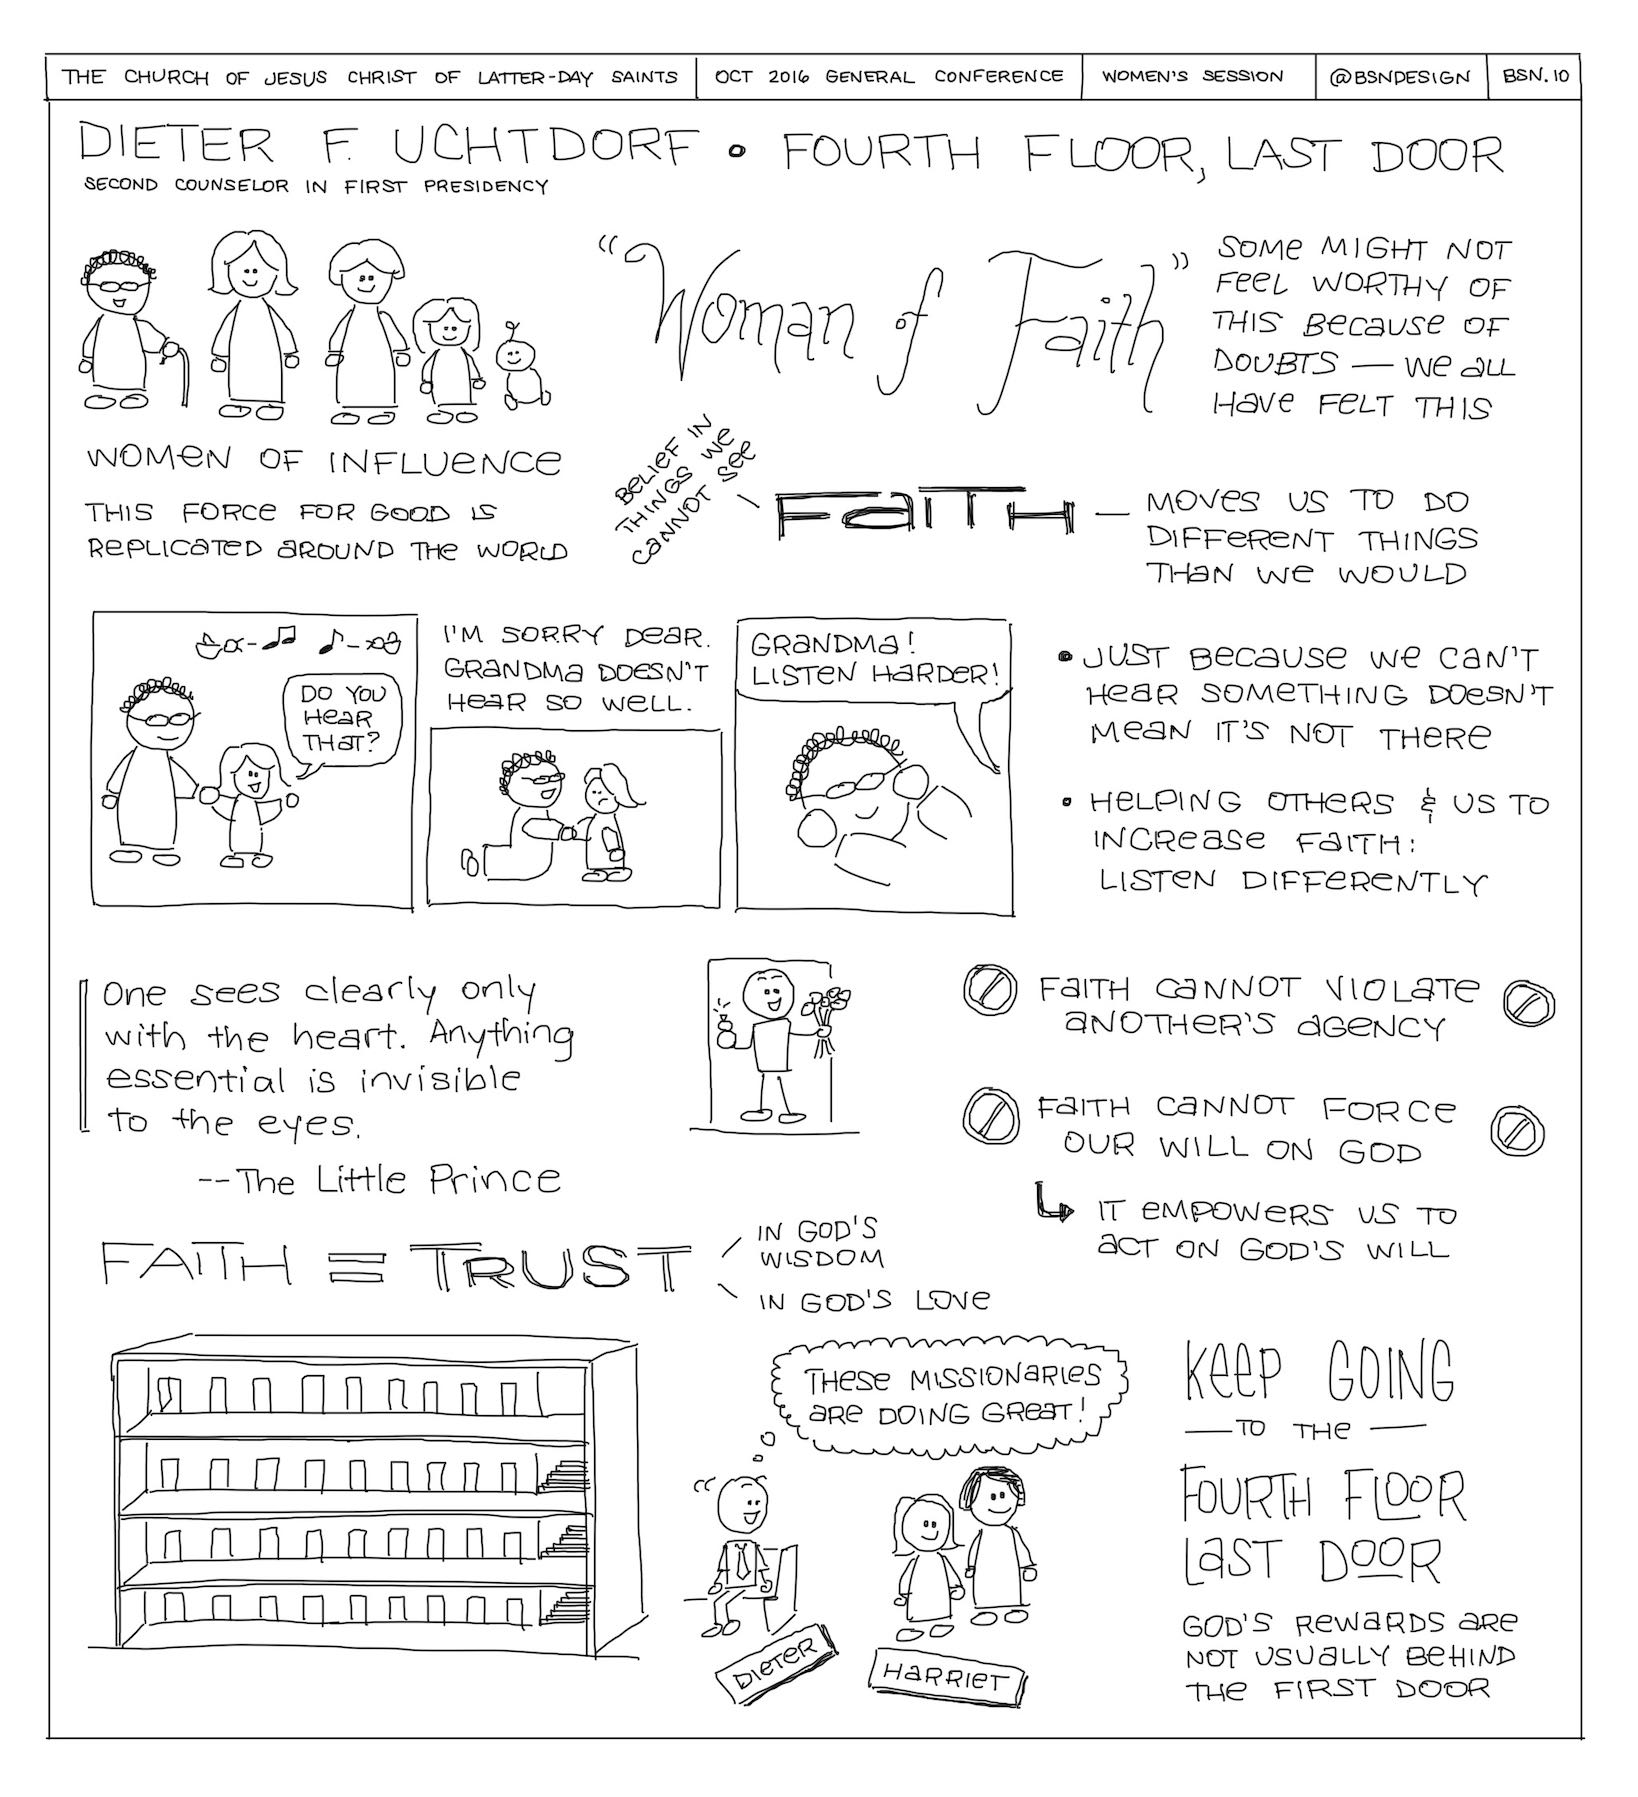 THE CHURCH OF JESUS CHRIST OF LATTER-DAY SAINTS
OCT 2016 GENERAL CONFERENCE
WOMEN'S SESSION
@BSNDESIGN
BSN.IO
DIETER F. UCHTDORF • FOURTH FLOOR, LAST DOOR
SECOND COUNSELOR IN FIRST PRESIDENCY
WOMEN OF INFLUENCE
THIS FORCE FOR GOOD IS
REPLICATED AROUND THE WORLD
"Woman of Faith"
SOME MIGHT NOT
FEEL WORTHY OF
THIS BECAUSE OF
DOUBTS — WE ALL
HAVE FELT THIS
BELIEF IN
THINGS WE
CANNOT SEE
FAITH
MOVES US TO DO
DIFFERENT THINGS
THAN WE WOULD
DO YOU
HEAR
THAT?
I'M SORRY DEAR.
GRANDMA DOESN'T
HEAR SO WELL.
GRANDMA!
LISTEN HARDER!
• JUST BECAUSE WE CAN'T
HEAR SOMETHING DOESN'T
MEAN IT'S NOT THERE
• HELPING OTHERS & US TO
INCREASE FAITH:
LISTEN DIFFERENTLY
One sees clearly only
with the heart. Anything
essential is invisible
to the eyes.
--The Little Prince
FAITH CANNOT VIOLATE
ANOTHER'S AGENCY
FAITH CANNOT FORCE
OUR WILL ON GOD
IT EMPOWERS US TO
ACT ON GOD'S WILL
FAITH = TRUST
IN GOD'S
WISDOM
IN GOD'S LOVE
THESE MISSIONARIES
ARE DOING GREAT!
DIETER
HARRIET
KEEP GOING
— TO THE —
FOURTH FLOOR
LAST DOOR
GOD'S REWARDS ARE
NOT USUALLY BEHIND
THE FIRST DOOR